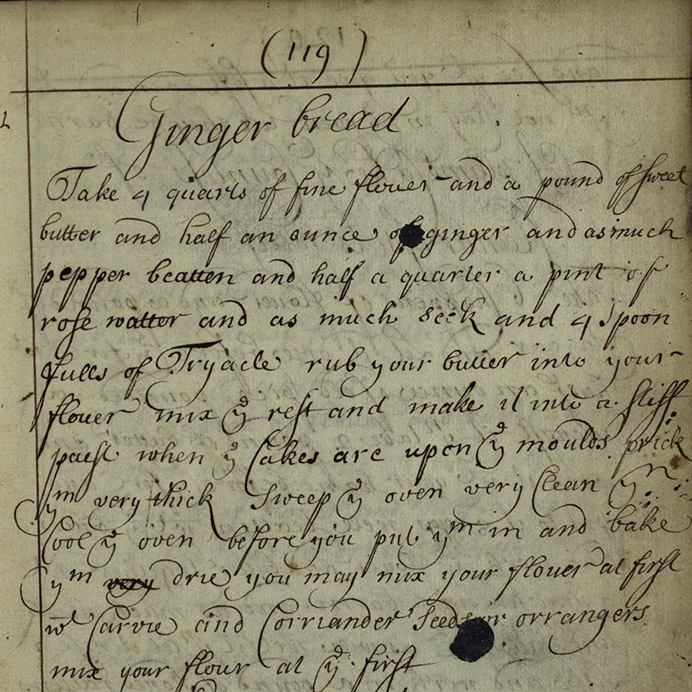 (119)
Ginger bread
Take 4 quarts of fine flouer and a pound of sweet
butter and half an ounce of ginger and as much
pepper beatten and half a quarter a pint of
rose watter and as much seck and 4 spoon
fulls of Tryacle rub your butter into your
flouer mix ye rest and make it into a stiff
paest when ye Cakes are upon ye moulds prick
ym very thick Sweep ye oven very Clean yn
Cool ye oven before you put ym in and bake
ym very drie you may mix your flouer at first
wt Carvie and Corriander Seeds or orrangers
mix your flour at ye first